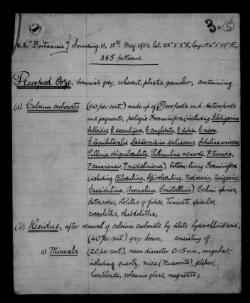 3.
S.S. "Britannia", Sounding 11, 18th May 1904, Lat. S., Long. E.
385 fathoms
Pteropod Ooze, brownish grey, coherent, plastic, granular, containing
(a) Calcium carbonate (60 per cent) made up of Pteropods and Heteropods
and fragments, pelagic Foraminifera (including Globigerina
bulloides, G. sacculifera, G. conglobata, G. rubra,
G. aequilateralis, Sphaeroidina dehiscens, Orbulina universa,
Pullenia obliquiloculata, Pulvinulina menardii, P. tumida,
P. canariensis, P. micheliniana), bottom-living Foraminifera
(including Biloculina, Spiroloculina, Nodosaria, Uvigerina,
Cassidulina, Anomalina, Cristellaria), Echini spines,
Ostracodes, otoliths of fishes, Tunicate spicules,
coccoliths, rhabdoliths;
(b) Residue, after removal of calcium carbonate by dilute hydrochloric acid,
(40 per cent) grey brown, consisting of
(1) Minerals (20 per cent), mean diameter mm, angular,
including quartz, mica (Muscovite), felspar,
hornblende, volcanic glass, magnetite;